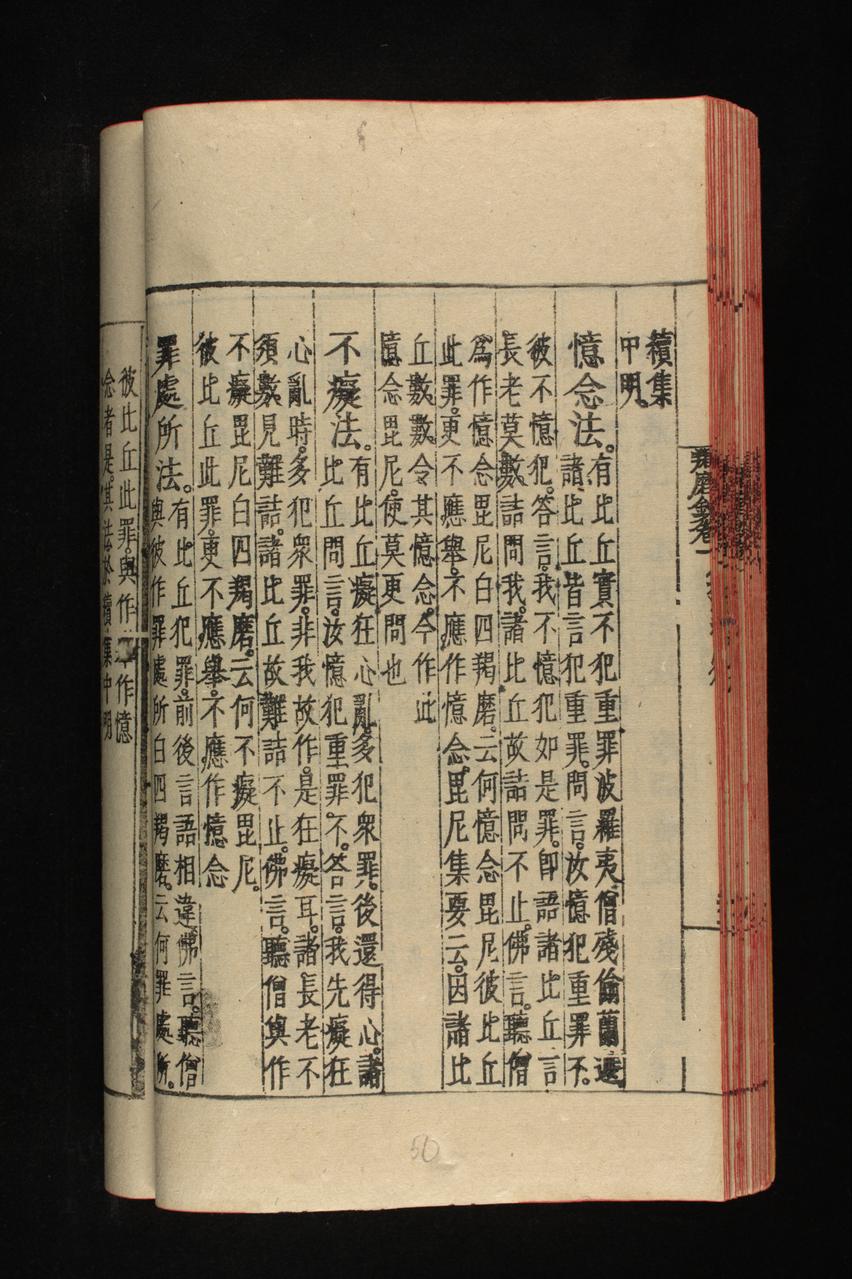 羯磨卷一
續集
中明。
憶念法。有比丘實不犯重罪波羅夷僧殘偷蘭遮
諸比丘皆言犯重罪。問言。汝憶犯重罪不。
彼不憶犯。答言。我不憶犯如是罪。卽語諸比丘言
長老莫數詰問我。諸比丘故詰問不止。佛言。聽僧
爲作憶念毘尼白四羯磨。云何憶念毘尼彼比丘
此罪。更不應舉。不應作憶念。毘尼集要云。因諸比
丘數數。令其憶念。今作此
憶念毘尼。使莫更問也
不癡法。有比丘癡狂心亂。多犯衆罪。後還得心。諸
比丘問言。汝憶犯重罪不。答言。我先癡狂
心亂時。多犯衆罪。非我故作。是狂癡耳。諸長老不
須數見難詰。諸比丘故難詰不止。佛言。聽僧與作
不癡毘尼白四羯磨。云何不癡毘尼。
彼比丘此罪。更不應舉。不應作憶念
罪處所法。有比丘犯罪。前後言語相違。佛言。聽僧
與彼作罪處所白四羯磨。云何罪處所。
彼比丘此罪。與作作憶
念者是。其法於續集中明
50